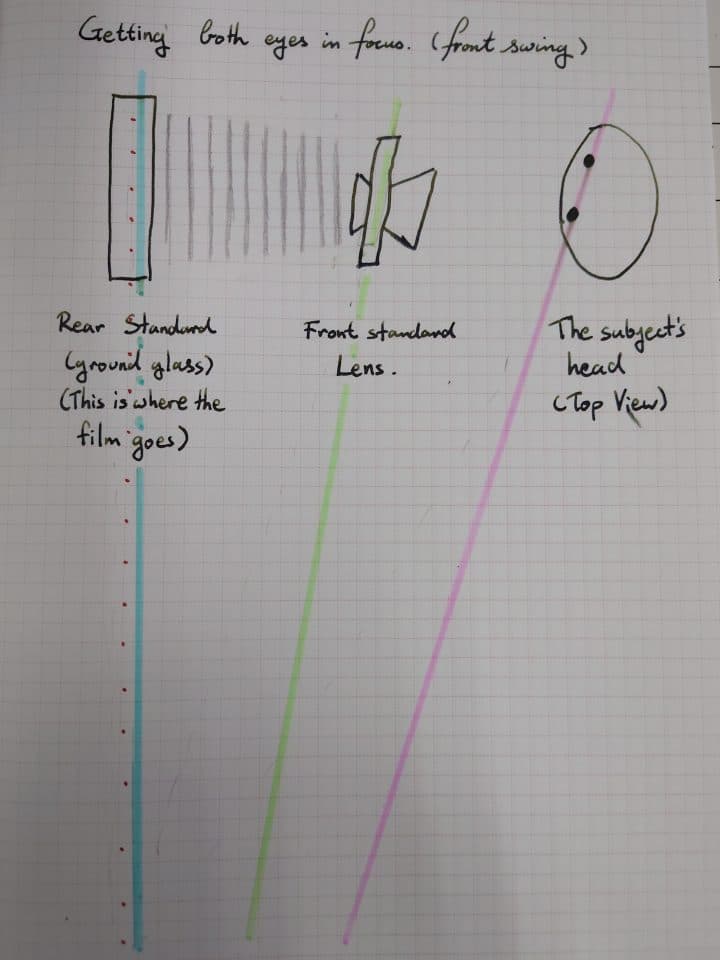 Getting both eyes in focus. (front swing)
Rear Standard
(ground glass)
(This is where the
film goes)
Front standard
Lens.
The subject's
head
(Top View)